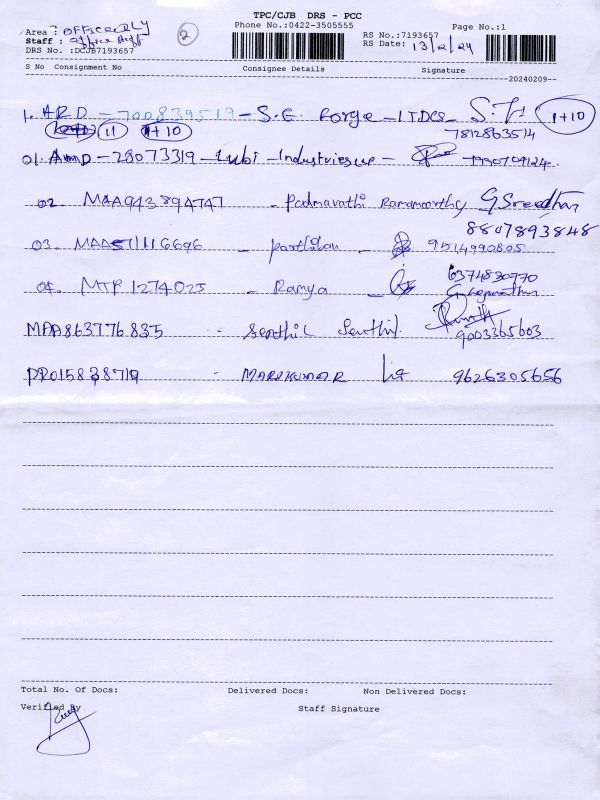 TPC/CJB DRS - PCC
Phone No.:0422-3505555
Page No.:1
Area : OFFICE DLY
Staff : office staff
DRS No. :DCJB7193657
2
RS No.:7193657
RS Date: 13/2/24
S No Consignment No Consignee Details Signature
--20240209--
1. ARD - 700839519 - S.E. Forge - 1 TDCS - 1+10
7812863514
11 1+10
01. AMD - 28073319 - Lubi - Industries LLP - 7990709124
02. MAA943894747 - Padmavathi Ramamoorthy G Sreedhar
8807893848
03. MAA571116696 - Parthiban - 9514990805
04. MTP1274025 - Ramya - 6374830770
MAA863776835 - Senthil Senthil 9003365603
PPO15838719 - 9626305656
Total No. Of Docs: Delivered Docs: Non Delivered Docs:
Verified By Staff Signature